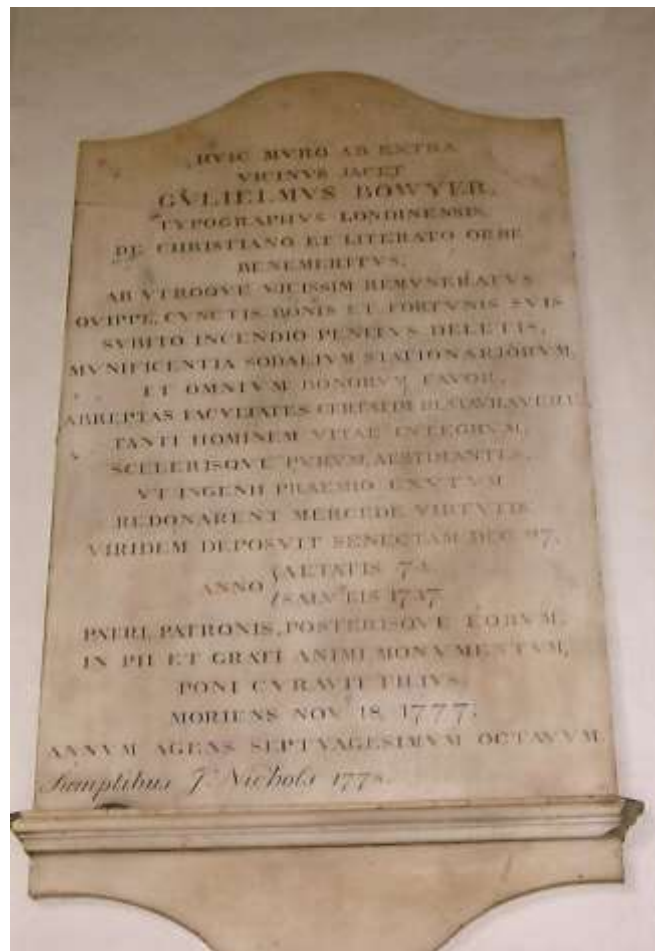 HVIC MVRO AB EXTRA
VICINVS JACET
GVLIELMVS BOWYER,
TYPOGRAPHVS LONDINENSIS,
DE CHRISTIANO ET LITERATO ORBE
BENEMERITVS,
AB VTROQVE VICISSIM REMVNERATVS
QVIPPE, CVNCTIS BONIS ET FORTVNIS SVIS
SVBITO INCENDIO PENITVS DELETIS,
MVNIFICENTIA SODALIVM STATIONARIORVM,
ET OMNIVM BONORVM FAVOR,
ABREPTAS FACVLTATES CERTATIM
TANTI HOMINEM VITAE INTEGRVM,
SCELERISQVE PVRVM, AESTIMANTES,
VT INGENII PRAEMIO EXVTVM
REDONARENT MERCEDE VIRTVTIS.
VIRIDEM DEPOSVIT SENECTAM DEC 27,
ANNO AETATIS 74.
SALVTIS 1737
PATRI, PATRONIS, POSTERISQVE EORVM,
IN PII ET GRATI ANIMI MONVMENTVM,
PONI CVRAVIT FILIVS,
MORIENS NOV 18, 1777.
ANNVM AGENS SEPTVAGESIMVM OCTAVVM
Sumptibus J Nichols 1778.